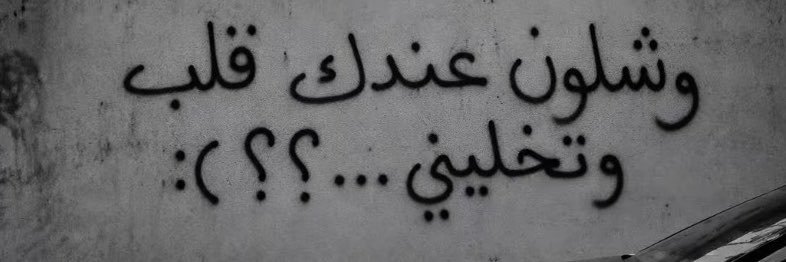 وشلون عندك قلب
وتخليني...؟؟ ):